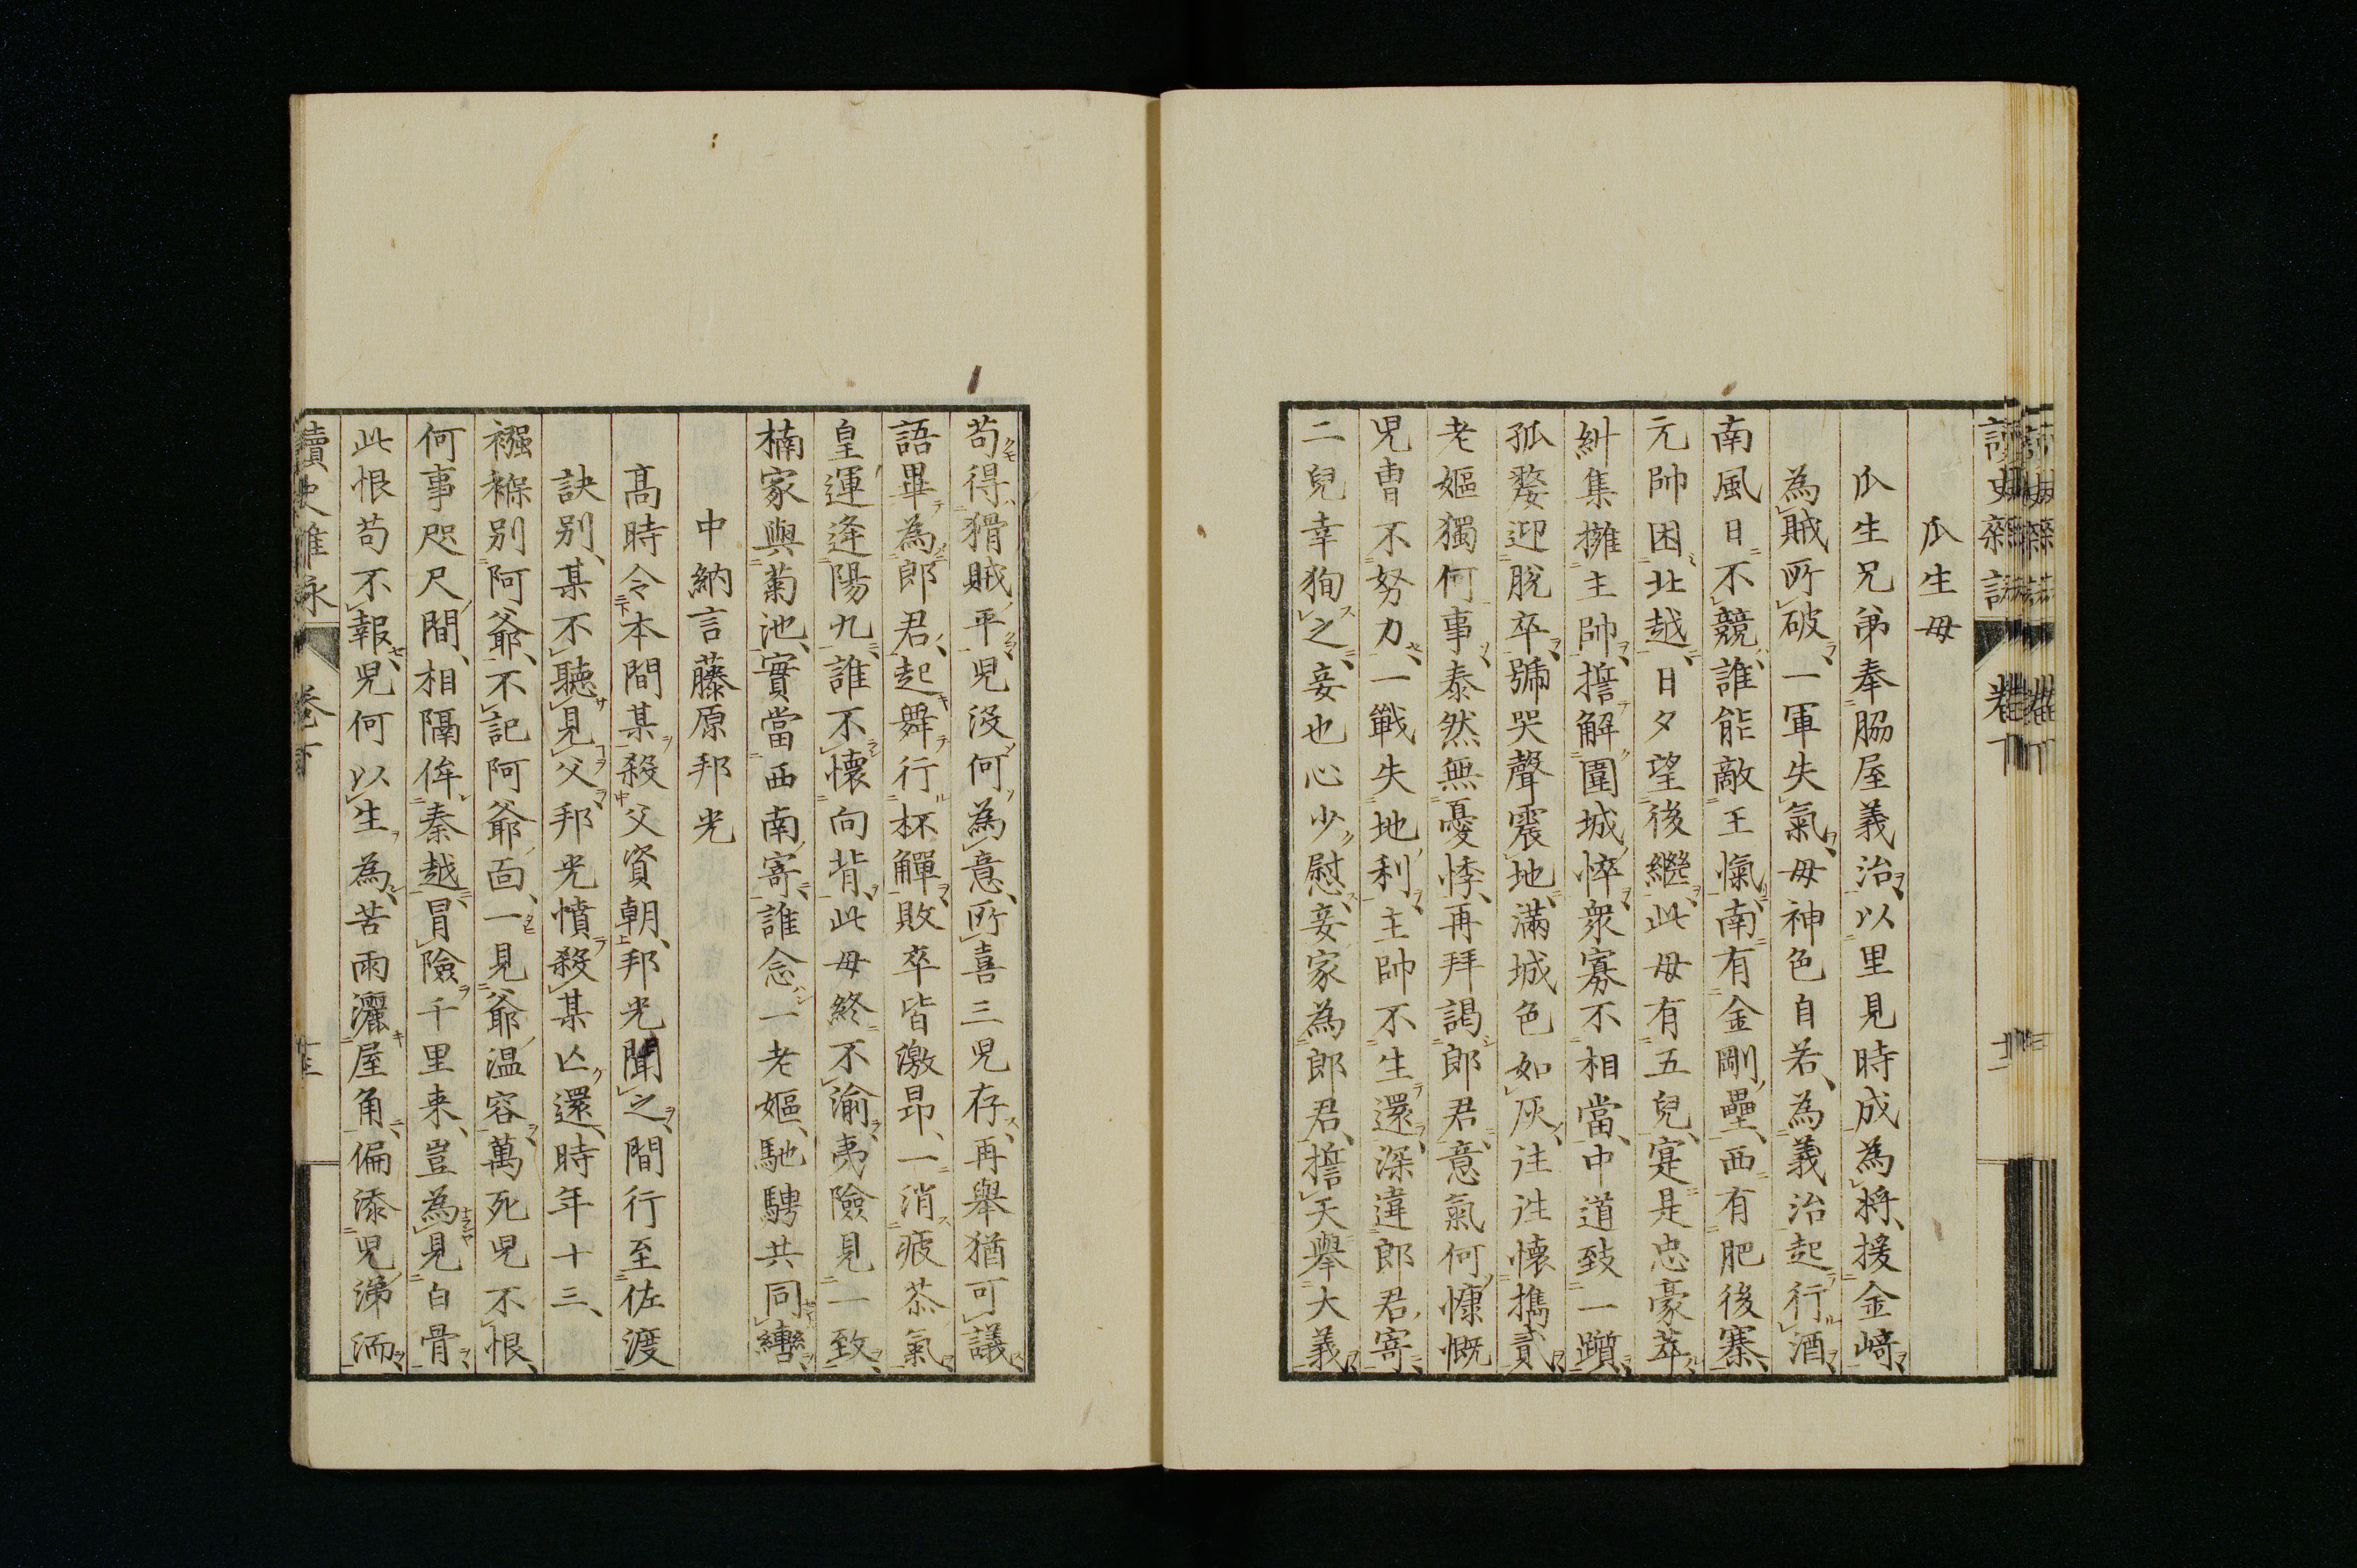 讀史雜詠 卷下 十二
瓜生母
瓜生兄弟奉脇屋義治以里見時成為將援金﨑
為賊所破一軍失氣母神色自若為義治起行酒
南風日不競誰能敵王愾南有金剛壘西有肥後寨
元帥困北越日夕望後繼此母有五兒寔是忠豪萃
糾集擁主帥誓解圍城悴衆寡不相當中道致一躓
孤嫠迎脫卒號哭聲震地滿城色如灰往往懷攜貳
老嫗獨何事泰然無憂悸再拜謁郎君意氣何慷慨
兒曹不努力一戰失地利主帥不生還深違郎君寄
二兒幸狥之妾也心少慰妾家為郎君誓天舉大義
苟得猾賊平兒沒何為意所喜三兒存再舉猶可議
語畢為郎君起舞行杯觶敗卒皆激昂一消疲苶氣
皇運逢陽九誰不懷向背此母終不渝夷險見一致
楠家與菊池實當西南寄誰念一老嫗馳騁共同轡
中納言藤原邦光
高時令本間某殺父資朝邦光聞之間行至佐渡
訣別某不聽見父邦光憤殺某亡還時年十三
襁褓別阿爺不記阿爺面一見爺温容萬死兒不恨
何事咫尺間相隔侔秦越冒險千里来豈為見白骨
此恨苟不報兒何以生為苦雨灑屋角偏添兒涕洏
讀史雜詠 卷下 十三